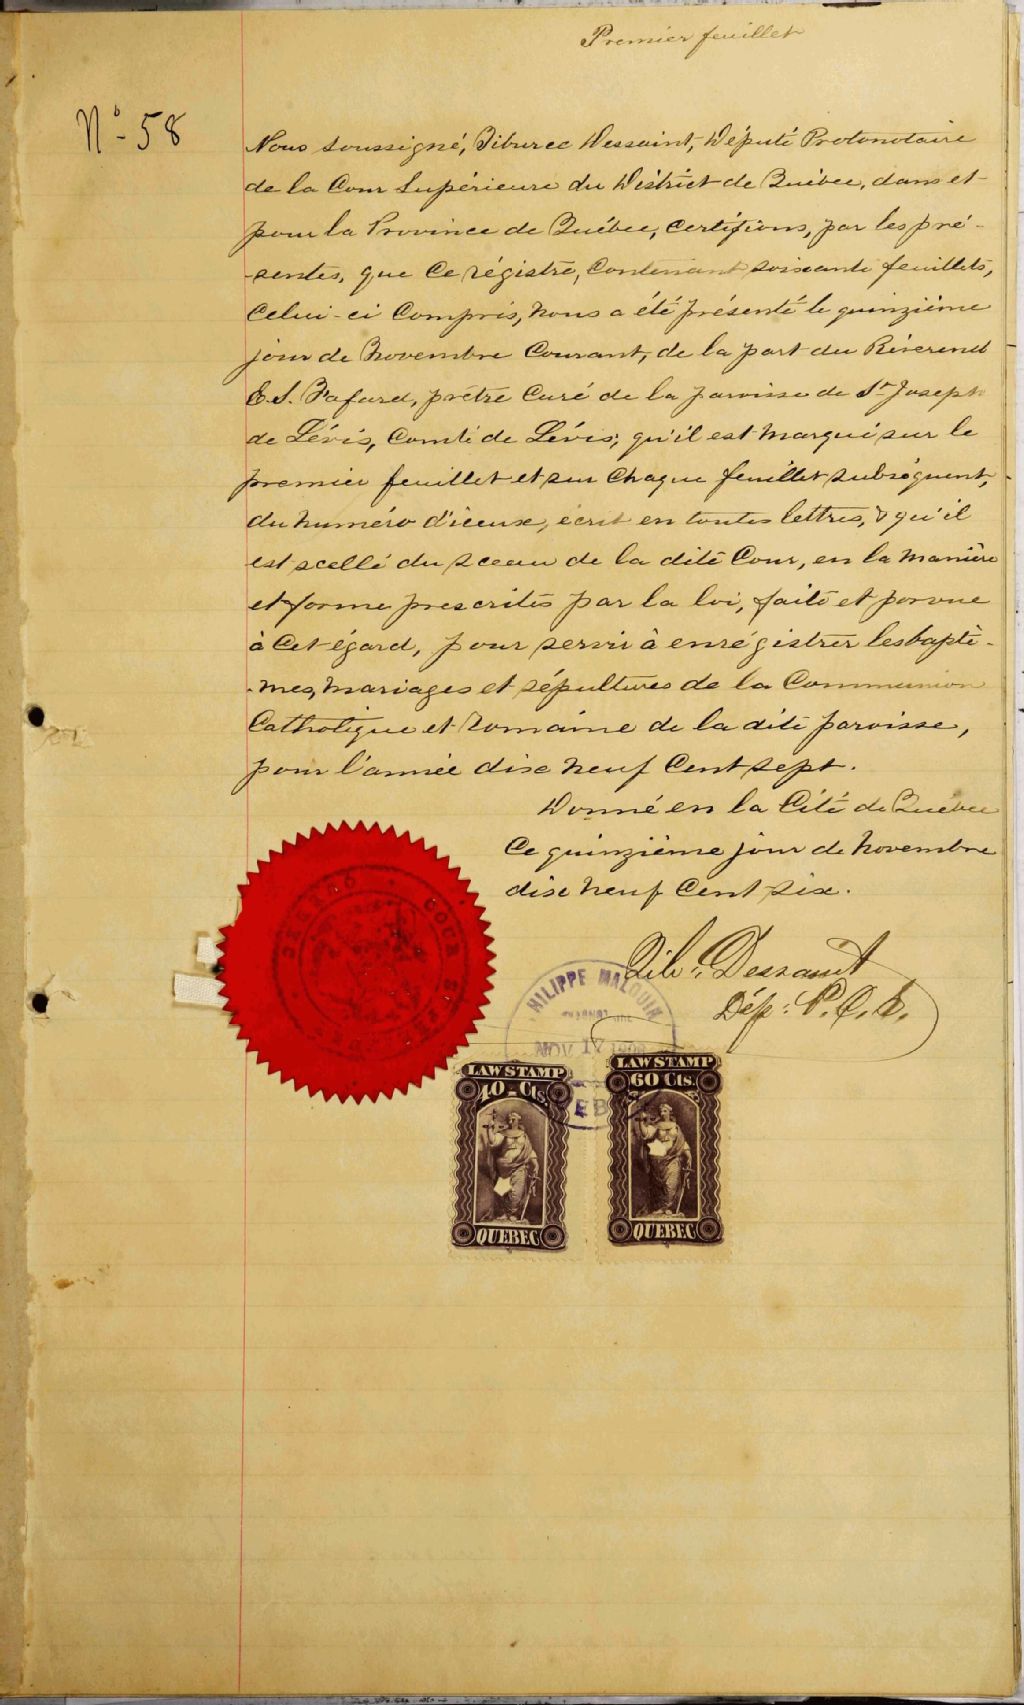 Premier feuillet
No 58
Nous soussigné, Tiburce Dessaint, Député Protonotaire
de la Cour Supérieure du District de Québec, dans et
pour la Province de Québec, certifions, par les pré-
-sentes, que ce régistre, contenant soixante feuillets,
celui-ci compris, nous a été présenté le quinzième
jour de Novembre courant, de la part du Révérend
E. S. Fafard, prêtre curé de la paroisse de St Joseph
de Lévis, Comté de Lévis; qu'il est marqué sur le
premier feuillet et sur chaque feuillet subséquent,
du numéro d'iceux, écrit en toutes lettres, & qu'il
est scellé du sceau de la dite Cour, en la manière
et forme prescrites par la loi, faite et pourvue
à cet égard, pour servir à enrégistrer les baptê-
-mes, mariages et sépultures de la Communion
Catholique et Romaine de la dite paroisse,
pour l'année dix neuf cent sept.
Donné en la Cité de Québec
ce quinzième jour de Novembre
dix neuf cent six.
Tib. Dessaint
Dép. P.C.S.
PHILIPPE MALOUIN
NOV 17 1906
LAW STAMP
40-Cts.
QUEBEC
LAW STAMP
60 Cts.
QUEBEC